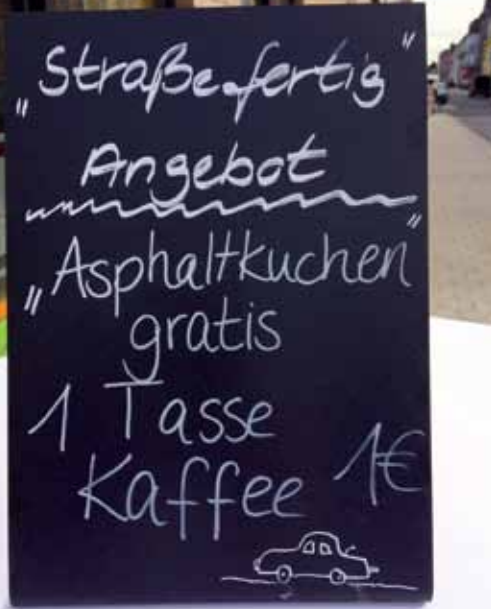 „Straße fertig“
Angebot
„Asphaltkuchen“
gratis
1 Tasse
Kaffee 1€